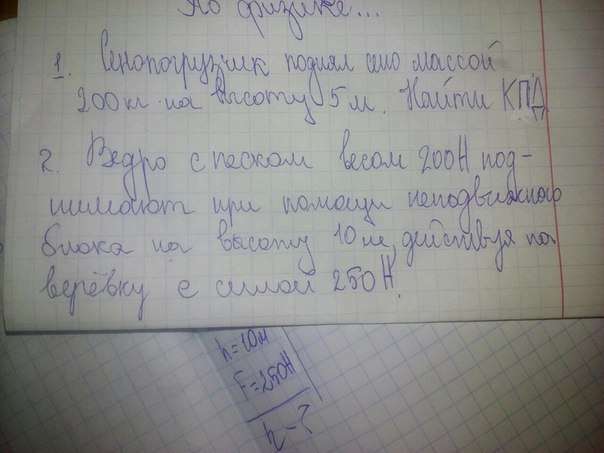 По физике...
1. Сенопогрузчик поднял сено массой
200кг на высоту 5м. Найти КПД
2. Ведро с песком весом 200Н под-
нимают при помощи неподвижного
блока на высоту 10м, действуя на
верёвку с силой 250Н.
h=10м
F=250Н
η-?